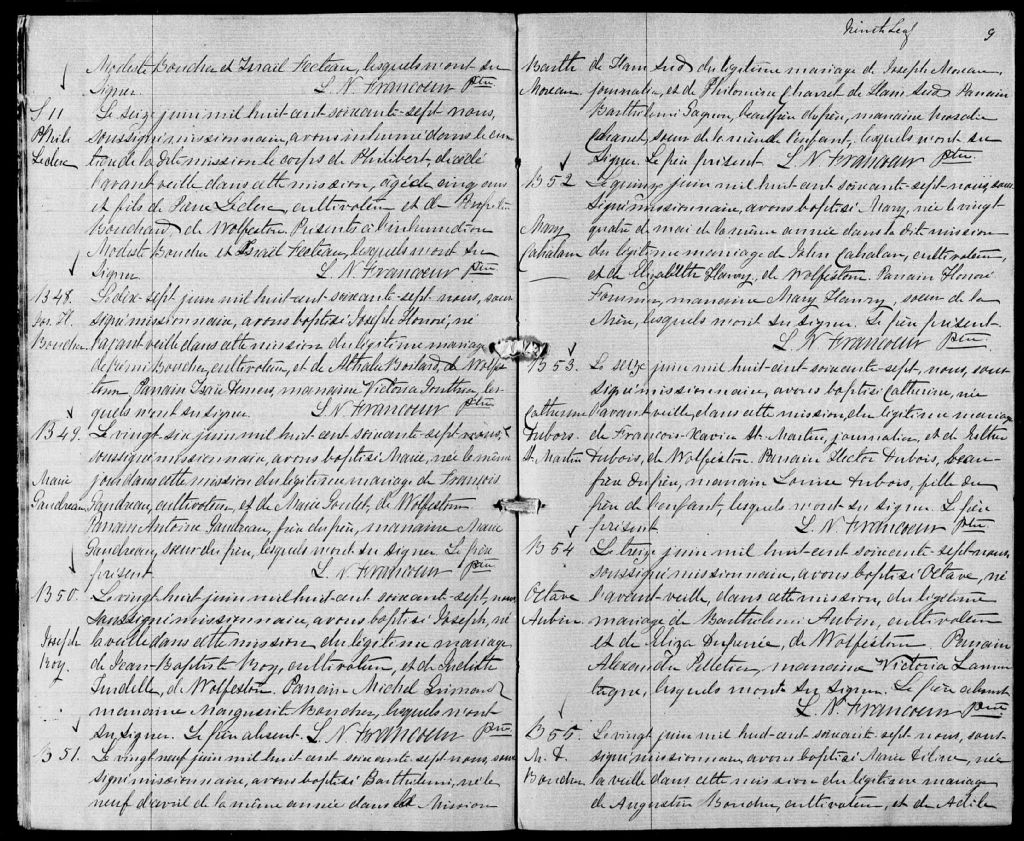 Modeste Boucher et Israil Fecteau, lesquels n'ont su
signer. L. N. Francoeur Ptre
S 11
Phili
Leclerc
Le seize juin mil huit-cent soixante-sept nous,
soussigné missionnaire, avons inhumé dans le cime
tière de la dite mission le corps de Philibert, décédé
l'avant veille dans cette mission, âgé de cinq ans
et fils de Leclerc, cultivateur et de
Bouchard, de Wolfestown. Présents à l'inhumation
Modeste Boucher et Israil Fecteau, lesquels n'ont su
signer. L. N. Francoeur Ptre
B 48.
Jos. H.
Boucher.
Le dix-sept juin mil huit-cent-soixante-sept nous, sous
signé missionnaire, avons baptisé Joseph Honoré, né
l'avant veille dans cette mission du légitime mariage
de Boucher, cultivateur, et de de Wolfes
town. Parrain marraine Victoria les-
quels n'ont su signer. L. N. Francoeur Ptre
B 49.
Marie
Gaudreau
Le vingt six juin mil huit-cent-soixante-sept nous,
soussigné missionnaire, avons baptisé Marie, née le même
jour dans cette mission du légitime mariage de François
Gaudreau, cultivateur, et de Marie Goulet, de Wolfestown
Parrain Antoine Gaudreau, frère du père, marraine Marie
Gaudreau, soeur du père, lesquels n'ont su signer. Le père
présent. L. N. Francoeur Ptre
B 50.
Joseph
Roy.
Le vingt huit juin mil huit-cent-soixante-sept, nous,
soussigné missionnaire, avons baptisé Joseph, né
la veille dans cette mission du légitime mariage
de Jean-Baptiste Roy, cultivateur, et de Juliette
de Wolfestown. Parrain Michel Grimard
marraine Marguerite Boucher, lesquels n'ont
su signer. Le père absent. L. N. Francoeur Ptre
B 51.
Le vingt neuf juin mil huit cent soixante-sept nous, sous
signé missionnaire, avons baptisé Barthelemi, né le
neuf d'avril de la même année dans la Mission
Ninth Leaf 9
Barth
Moreau
de Ham Sud du légitime mariage de Joseph Moreau,
journalier, et de Philomine Charest de Ham Sud Parrain
Barthelemi Gagnon, beau frère du père, marraine
soeur de la mère de l'enfant, lesquels n'ont su
signer. Le père présent L. N. Francoeur Ptre
B 52
Mary
Cahalan
Le quinze juin mil huit cent soixante-sept nous, sous
signé missionnaire, avons baptisé Mary, née le vingt
quatre de mai de la même année dans la dite mission
du légitime mariage de John Cahalan, cultivateur,
et de Elizabeth Henry, de Wolfestown. Parrain Honoré
Fournier, marraine Mary Henry, soeur de la
mère, lesquels n'ont su signer. Le père présent.
L. N. Francoeur Ptre
B 53.
Catherine
Dubois.
St. Martin
Le seize juin mil huit cent soixante-sept, nous, sous
signé missionnaire, avons baptisé Catherine, née
l'avant veille, dans cette mission, du légitime mariage
de François-Xavier St. Martin, journalier, et de Esther
Dubois, de Wolfestown. Parrain Hector Dubois, beau-
frère du père, marraine Louise Dubois, fille du
frère de l'enfant, lesquels n'ont su signer. Le père
présent L. N. Francoeur Ptre
B 54
Octave
Aubin.
Le treize juin mil huit-cent-soixante-sept nous,
soussigné missionnaire, avons baptisé Octave, né
l'avant-veille, dans cette mission, du légitime
mariage de Barthelemi Aubin, cultivateur
et de Eliza de Wolfestown Parrain
Alexandre Pelletier, marraine Victoria Lamon
tagne, lesquels n'ont su signer. Le père absent.
L. N. Francoeur Ptre
B 55.
M. D.
Boucher
Le vingt juin mil huit-cent soixante-sept nous, sous
signé missionnaire, avons baptisé Marie née
la veille dans cette mission du légitime mariage
de Augustin Boucher, cultivateur, et de Adile